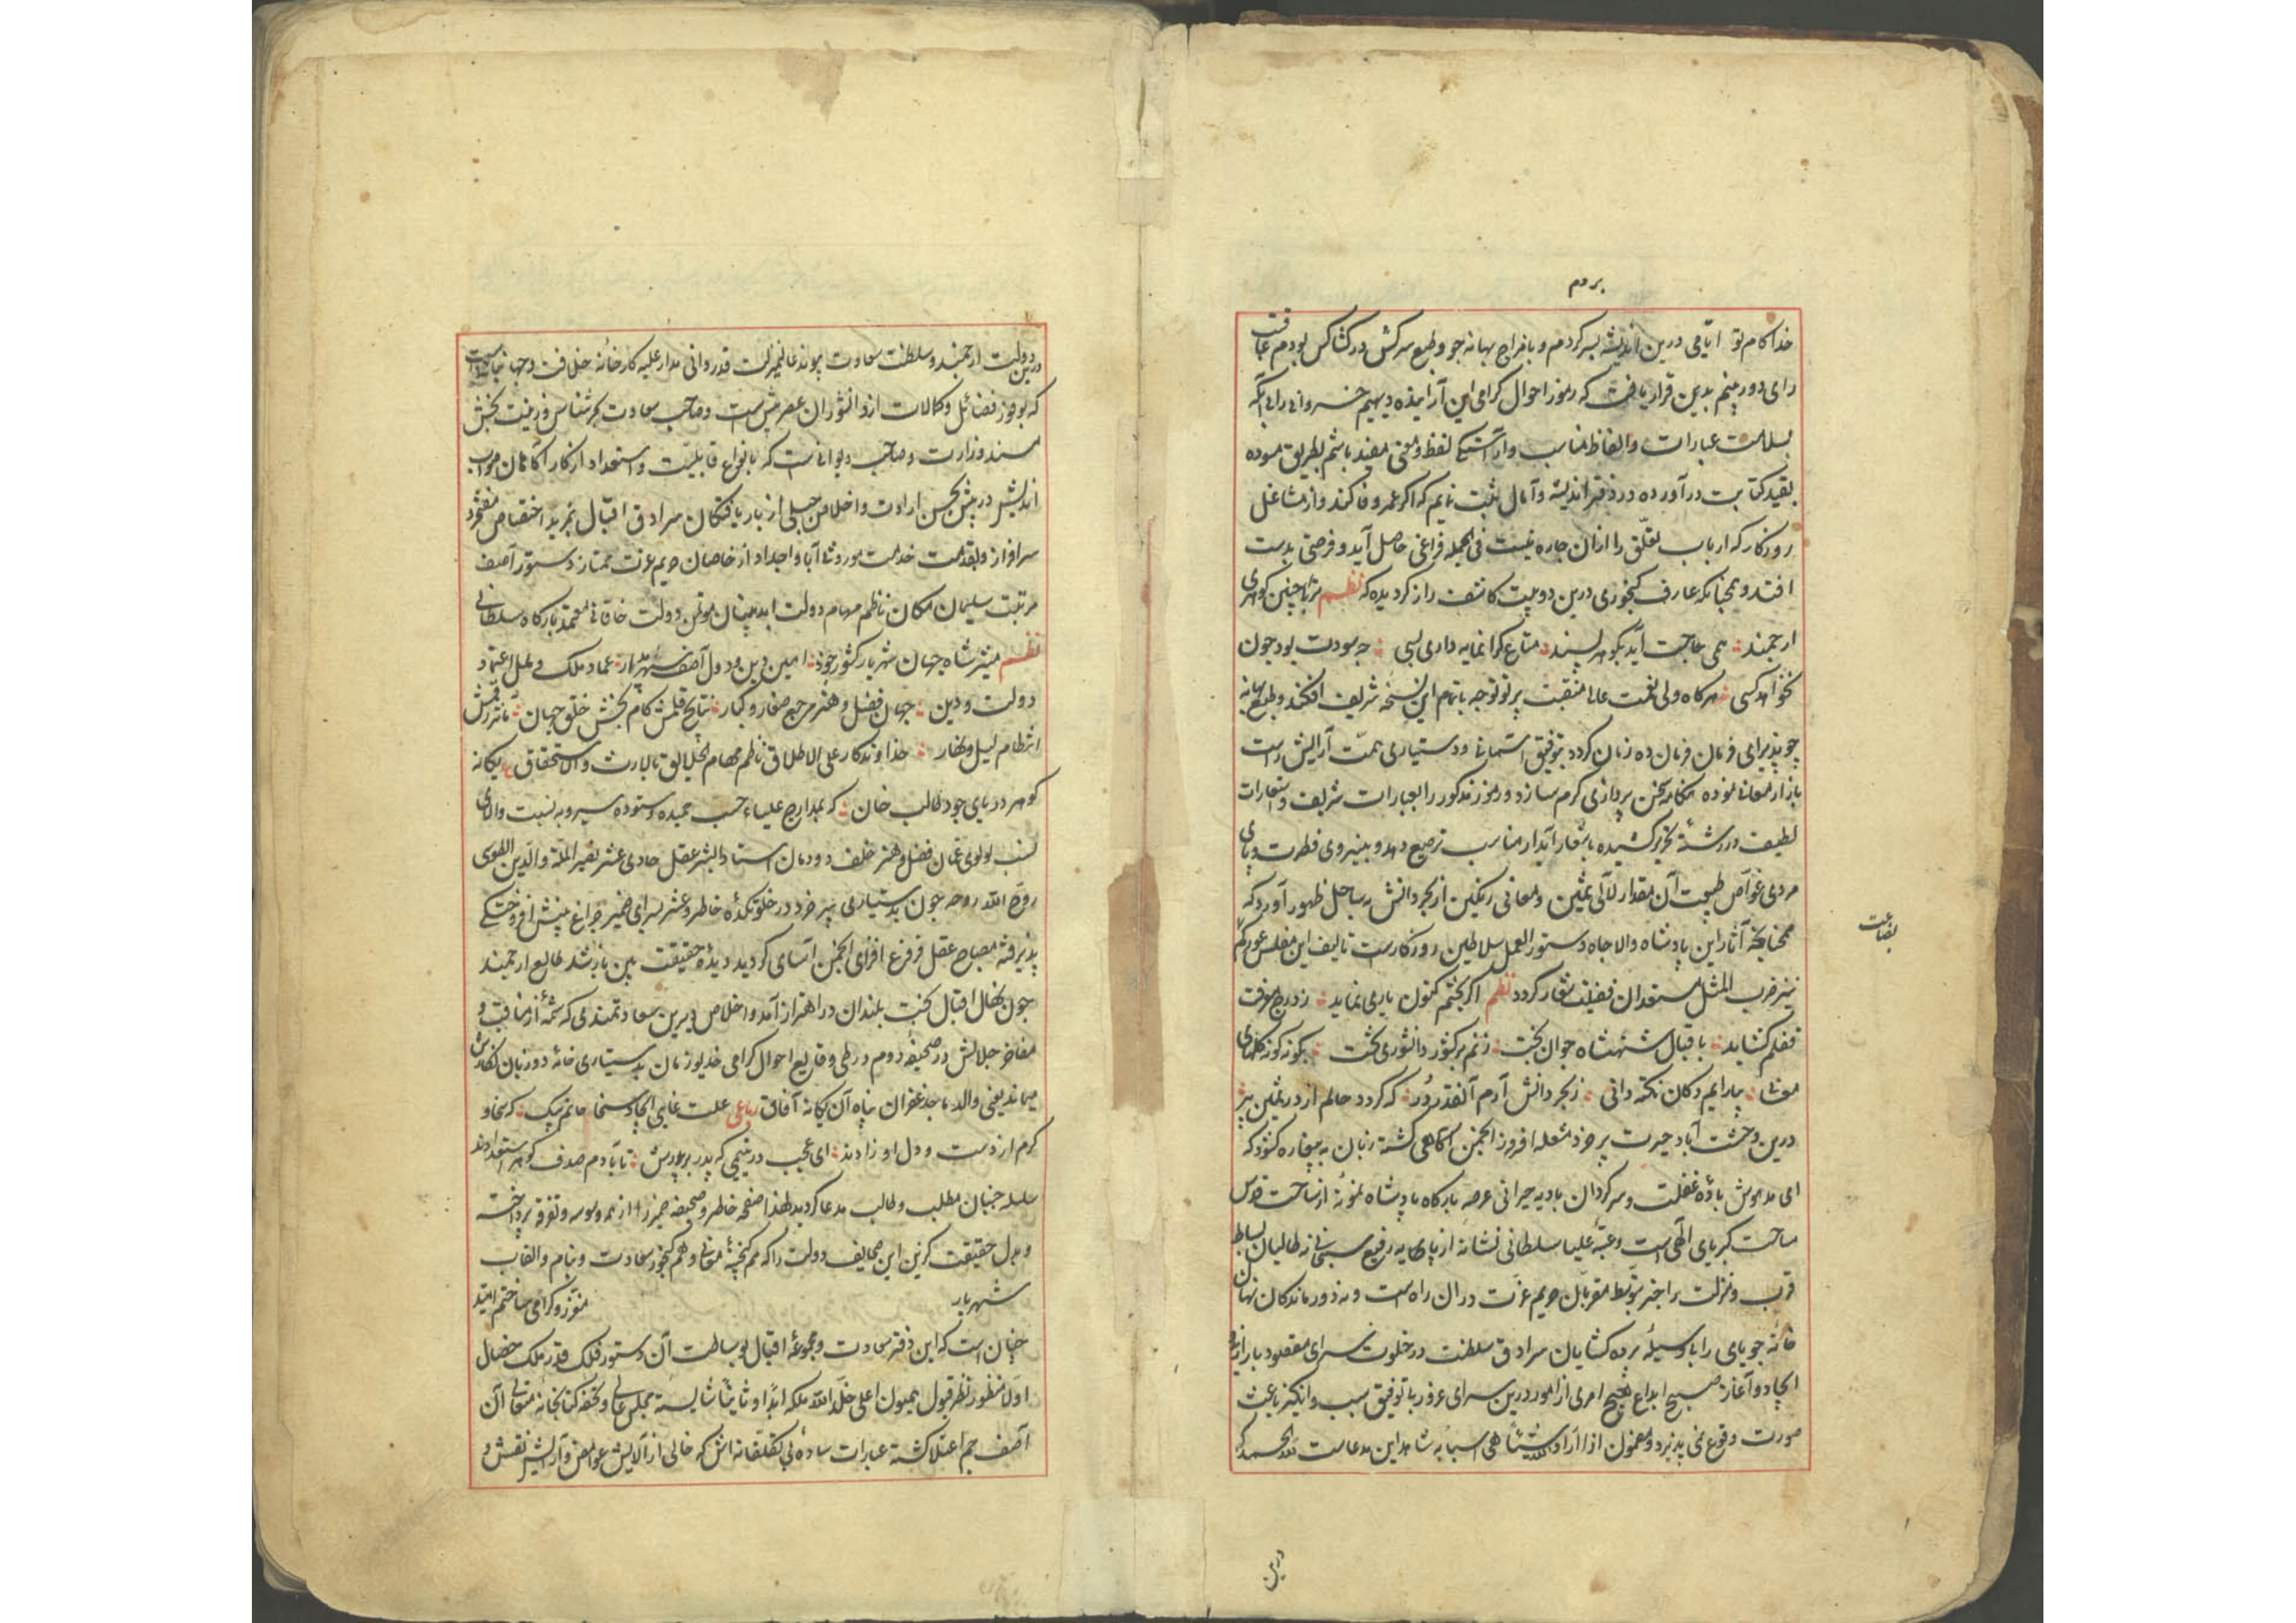 بردم
خداکام تو ایامی درین اندیشه بسر کردم و با مزاج بهانه جو و طبع سرکش در کشاکش بودم عاقبت
رای دوربینم بدین قرار یافت که رموز احوال کرامی این آراینده دیهیم خسروانی را بی آنکه
بسلاست عبارات و الفاظ مناسب و آراستگی لفظ و معنی مقید باشم بطریق مسوده
بقید کتابت درآورده در دفتر اندیشه و آمال ثبت نمایم که اکر عمر وفا کند و از مشاغل
روزکار که ارباب تعلّق را ازان چاره نیست فی الجمله فراغی حاصل آید و فرصتی بدست
افتد و همچنانکه عارف کنجوری درین دو بیت کاشف راز کردیده که نظم مرا با چنین کوهری
ارجمند همی حاجت آید بکوهر پسند متاع کرانمایه داری بسی چه سودت بود چون
نخواهد کسی هرکاه ولی نعمت عالی منقبت پرتو توجه باتمام این نسخه شریف افکند و طبع بهانه
جو پذیرای فرمان فرمان ده زمان کردد بتوفیق آسمانی و دستیاری همّت آرایش راست
بازار معانی نموده هنکامه سخن پردازی کرم سازد و رموز مذکور را بعبارات شریف و استعارات
لطیف در رشتهٔ تحریر کشیده باشعار آبدار مناسب ترصیع دهد و بنیروی فطرت و پای
مردی غوّاص طبیعت آن مقدار لآلی ثمین و معانی رنکین از بحر دانش بساحل ظهور آورد که
همچنانچه آثار این پادشاه والاجاه دستور العمل سلاطین روزکارست تالیف این مفلس عور کم
بضاعت
نیز ضرب المثل مستعدان فضیلت شعار کردد نظم اکر بختم کنون یاری نماید ز درج معرفت
قفلم کشاید باقبال شهنشاه جوان بخت زنم بر کشور دانشوری تخت بکونه کونه کلهای
معانی بیارایم دکان نکته دانی ز بحر دانش آرم آنقدر دُر که کردد عالم از در ثمین پر
درین وحشت آباد حیرت پیر خرد مشعله افروز انجمن آکاهی کشته زبان به بیغاره کشود که
ای مدهوش بادهٔ غفلت و سرکردان بادیه حیرانی عرصه بارکاه پادشاه نمونهٔ از ساحت قدس
ساحت کبریای الٓهی است و عتبهٔ علیا سلطانی نشانهٔ از پایه رفیع سبحانی نه طالبان بساط
قرب و منزلت را جز بتوسط مقربان حریم عزّت دران راه است و نه دورماندکان نهان
خانه جویای را با وسیلهٔ پرده کشایان سرادق سلطنت در خلوت سرای مقصود بار از
ایجاد و آغاز صبح ابداع هیچ امری از امور درین سرای غرور با توفیق سبب و انکیز باعث
صورت وقوع نمی پذیرد و مضمون اذا اراد الله شیئاً هیّ اسبابه شاهد این مدعاست لله الحمد که
درین
درین دولت ارجمند و سلطنت سعادت پیوند عالیمنزلت قدردانی مدار علیه کارخانه خلافت و جهانبانیست
که بوفور فضائل و کمالات از دانشوران عصر بیش است و صاحب سعادت کهرشناس و زینت بخش
مسند وزارت و صاحب دیوانیست که بانواع قابلیّت و استعداد از کارآکاهان صواب
اندیش در پیش بحسن ارادت و اخلاص جبلی از باریافتکان سرادق اقبال بمزید اختصاص مفتخر و
سرافراز و بقدمت خدمت موروثی آبا و اجداد از خاصان حریم عزت ممتاز دستور آصف
مرتبت سلیمان مکان ناظم مهام دولت ابد بنیان مؤتمن دولت خاقانی معتمد بارکاه سلطانی
نظم مشیر شاه جهان شهریار کشور جود امین دین و دول آصف سپهر مدار عماد ملک و ملل اعتماد
دولت و دین جهان فضل و هنر مرجع صغار و کبار نتایج قلمش کام بخش خلق جهان مآثر رقمش
انتظام لیل و نهار خداوندکار علی الاطلاق ناظم مهام الخلایق بالارث و الاستحقاق یکانه
کوهر دریای جود طالب خان که بمدارج علیاء حسب حمیده و ستوده سیر و به نسبت والای
نسب لولوی عمان فضل و هنر خلف دودمان استاد البشر عقل حادی عشر نصیر الملّة و الدّین الطوسی
روّح الله روحه چون بدستیاری پیر خرد در خلوتکدهٔ خاطر و عشرسرای ضمیر چراغ بینش افروختکی
پذیرفته مصباح عقل فروغ افزای انجمن آسای کردید دیدهٔ حقیقت بین باز شد طالع ارجمند
چون نهال اقبال نخبت بلندان در اهتزاز آمد و اخلاص دیرین سعادتمندی که شمهٔ از مناقب و
مفاخر جلالش در صحیفهٔ دوم در طی وقایع احوال کرامی خدیو زمان بدستیاری خامه دو زبان نکارش
میابد یعنی والد ماجد غفران پناه آن یکانه آفاق رباعی علت غایی ایجاد سخا حاتم بیک که سخا و
کرم از دست و دل او زادند ای عجب در یتیمی که پدر بر پدرش تا بآدم صدف کوهر استعدادند
سلسله جنبان مطلب و طالب مدعا کردید لهذا صفحه خاطر و صحیفه ضمیر را از هر وسوسه و تفرقه پرداخته
و بدل حقیقت کزین این صحایف دولت را که هم کنجینهٔ معانی و هم کنجور سعادت و بنام و القاب
شهریار معزّز و کرامی ساختم امید
چنان است که این دفتر سعادت و مجموعهٔ اقبال بوساطت آن دستور فلک قدر ملک خصال
اولا منظور نظر قبول همیون اعلی خلّد الله ملکه ابدا و ثانیاً شایسته مجلس عالی و تحفه کتابخانه متعالی آن
آصف جم اعتلا کشته عبارات سادهٔ بی تکلّفانه اش که خالی از آلایش غوامض و آرایش نقش و